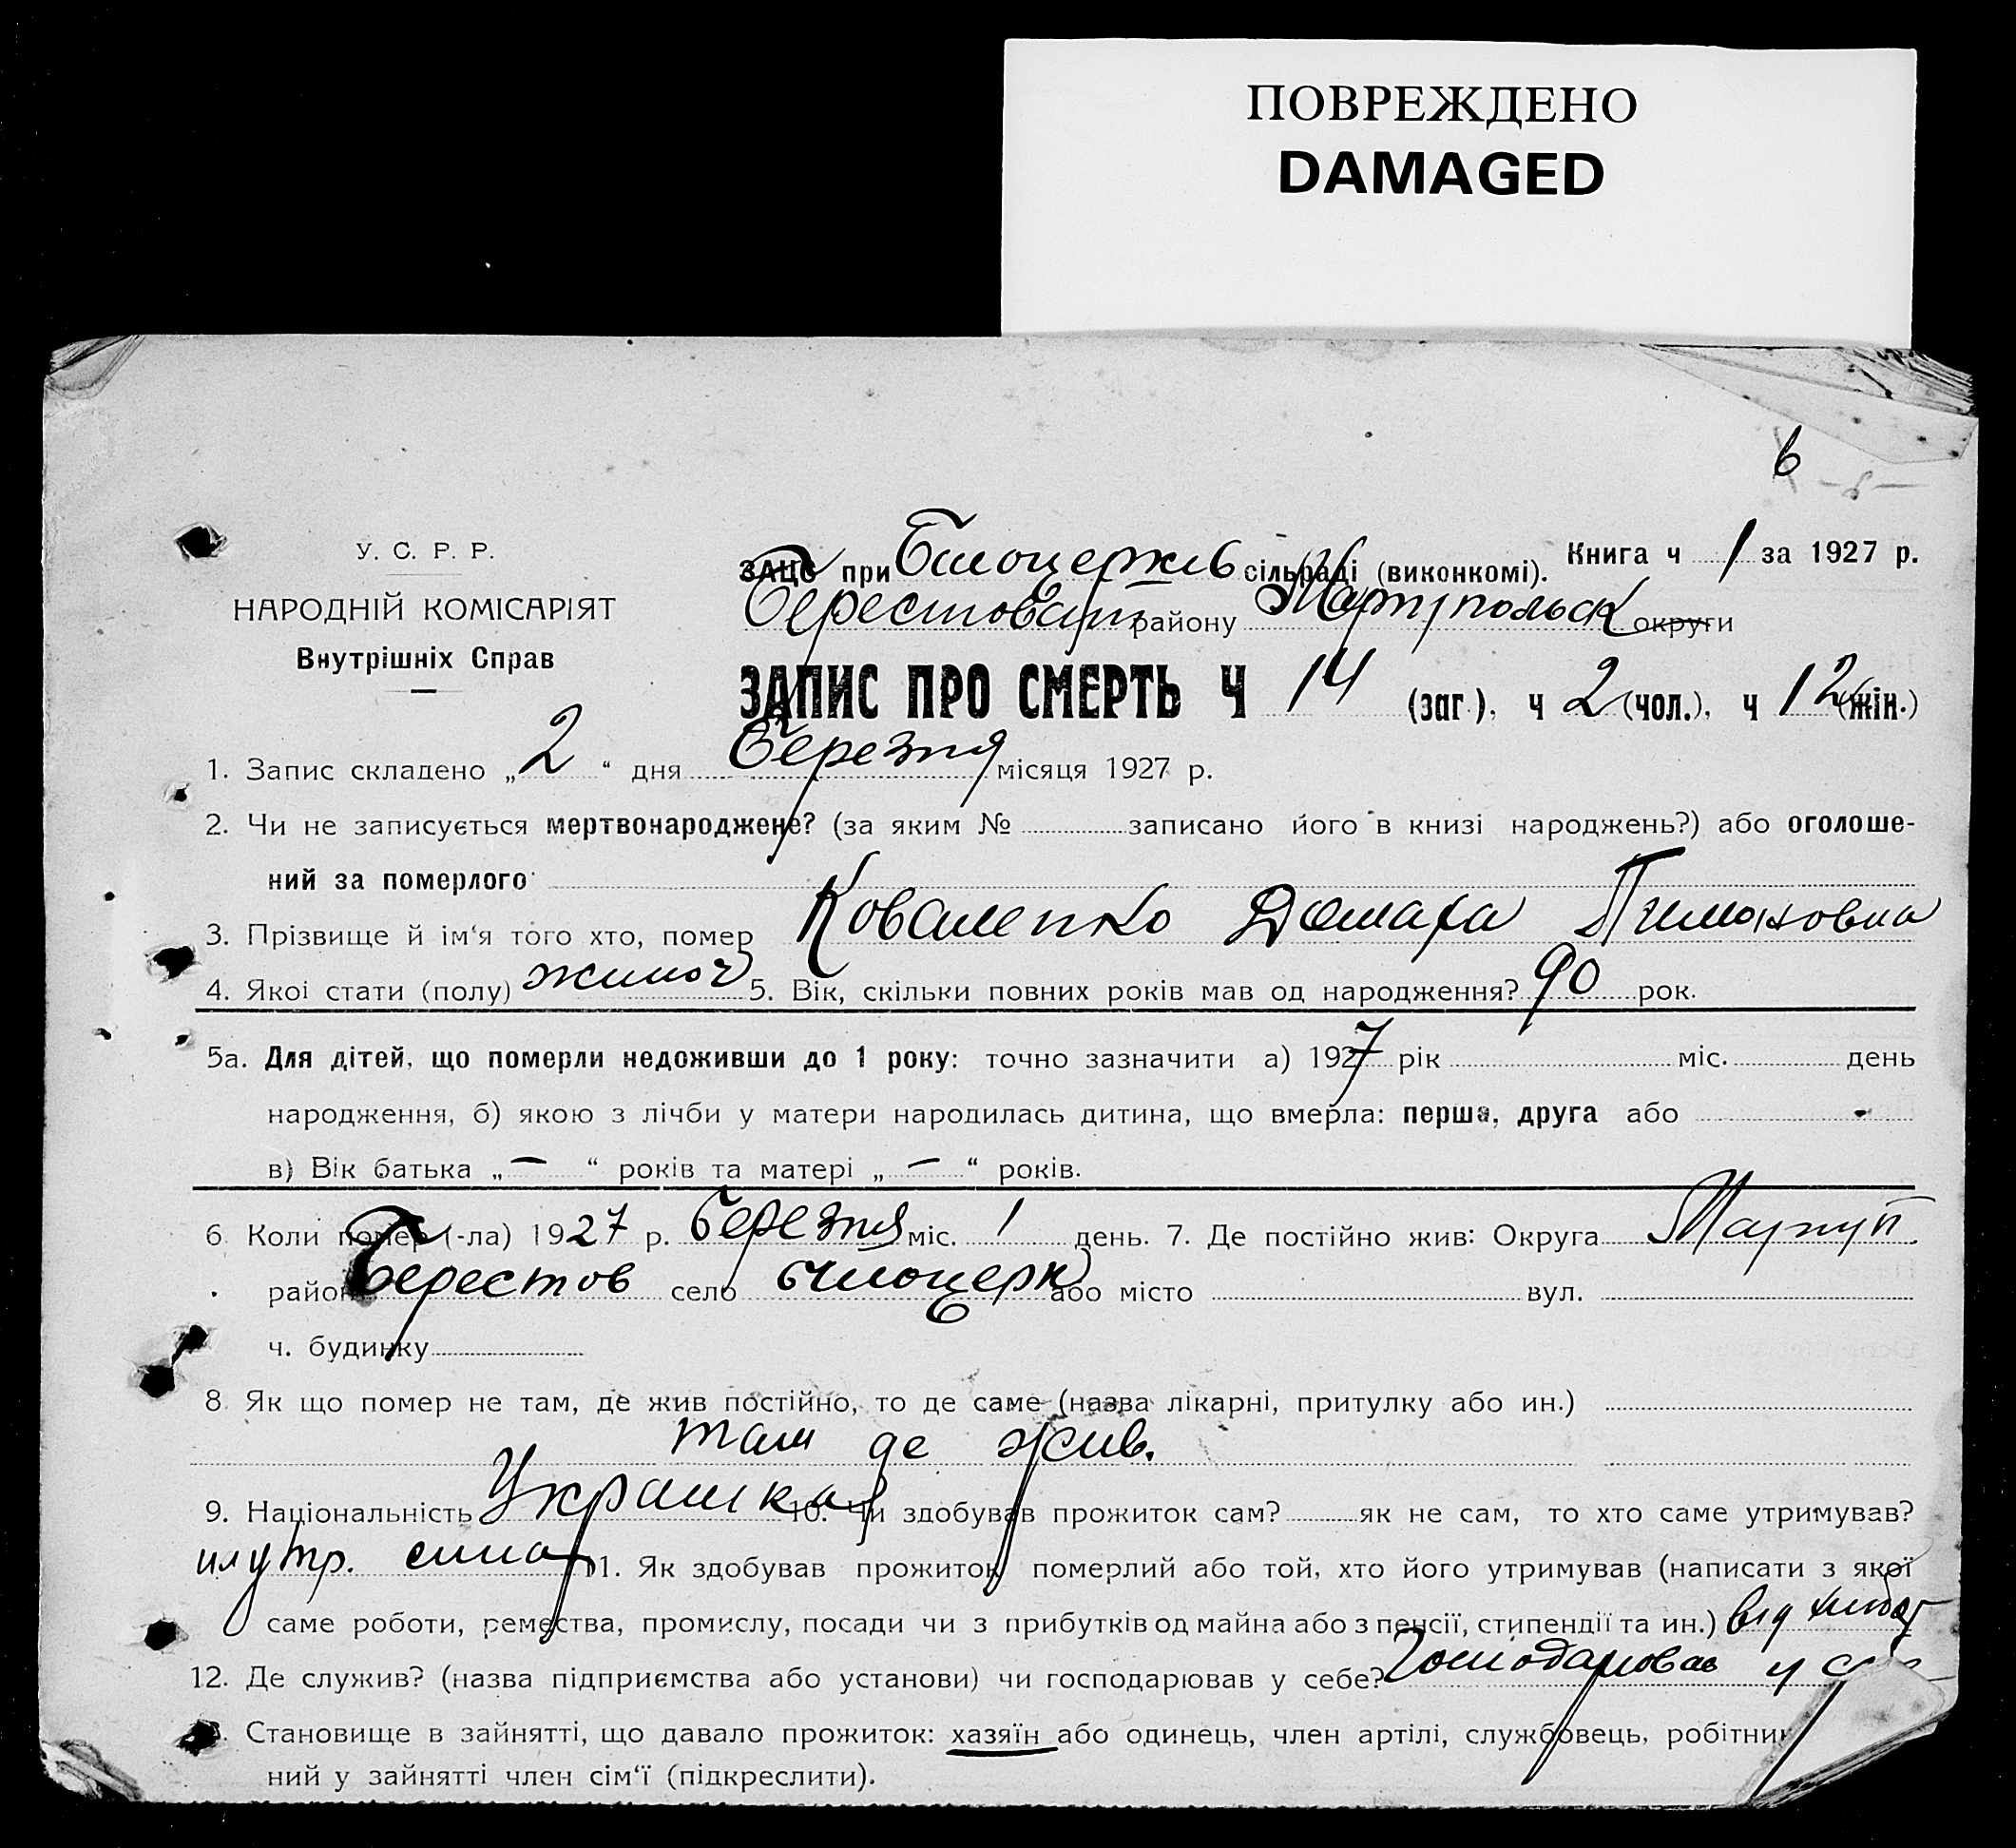 ПОВРЕЖДЕНО
DAMAGED
6
У. С. Р. Р.
НАРОДНІЙ КОМІСАРІЯТ
Внутрішніх Справ
ЗАЦС при Білоцерків сільраді (виконкомі). Книга ч 1 за 1927 р.
Берестоват району Маріупольськ округи
ЗАПИС ПРО СМЕРТЬ Ч 14 (заг.), ч 2 (чол.), ч 12 (жін.)
1. Запис складено „ 2 “ дня Березня місяця 1927 р.
2. Чи не записується мертвонароджене? (за яким № записано його в книзі народжень?) або оголоше-
ний за померлого
3. Прізвище й ім‘я того хто, помер Коваленко Домаха
4. Якої стати (полу) жіноч 5. Вік, скільки повних років мав од народження? 90 рок.
5а. Для дітей, що померли недоживши до 1 року: точно зазначити а) 1927 рік міс. день
народження, б) якою з лічби у матери народилась дитина, що вмерла: перша, друга або
в) Вік батька „ — “ років та матері „ — “ років.
6. Коли помер (-ла) 1927 р. березня міс. 1 день. 7. Де постійно жив: Округа Маріуп.
район Берестов село білоцерк або місто вул.
ч. будинку
8. Як що помер не там, де жив постійно, то де саме (назва лікарні, притулку або ин.)
там де жив.
9. Національність Українка 10. Чи здобував прожиток сам? як не сам, то хто саме утримував?
сина 11. Як здобував прожиток померлий або той, хто його утримував (написати з якої
саме роботи, ремества, промислу, посади чи з прибутків од майна або з пенсії, стипендії та ин.) від хлібор
12. Де служив? (назва підприємства або установи) чи господарював у себе? Господарював у
Становище в зайнятті, що давало прожиток: хазяїн або одинець, член артілі, службовець, робітник
ний у зайнятті член сім‘ї (підкреслити).